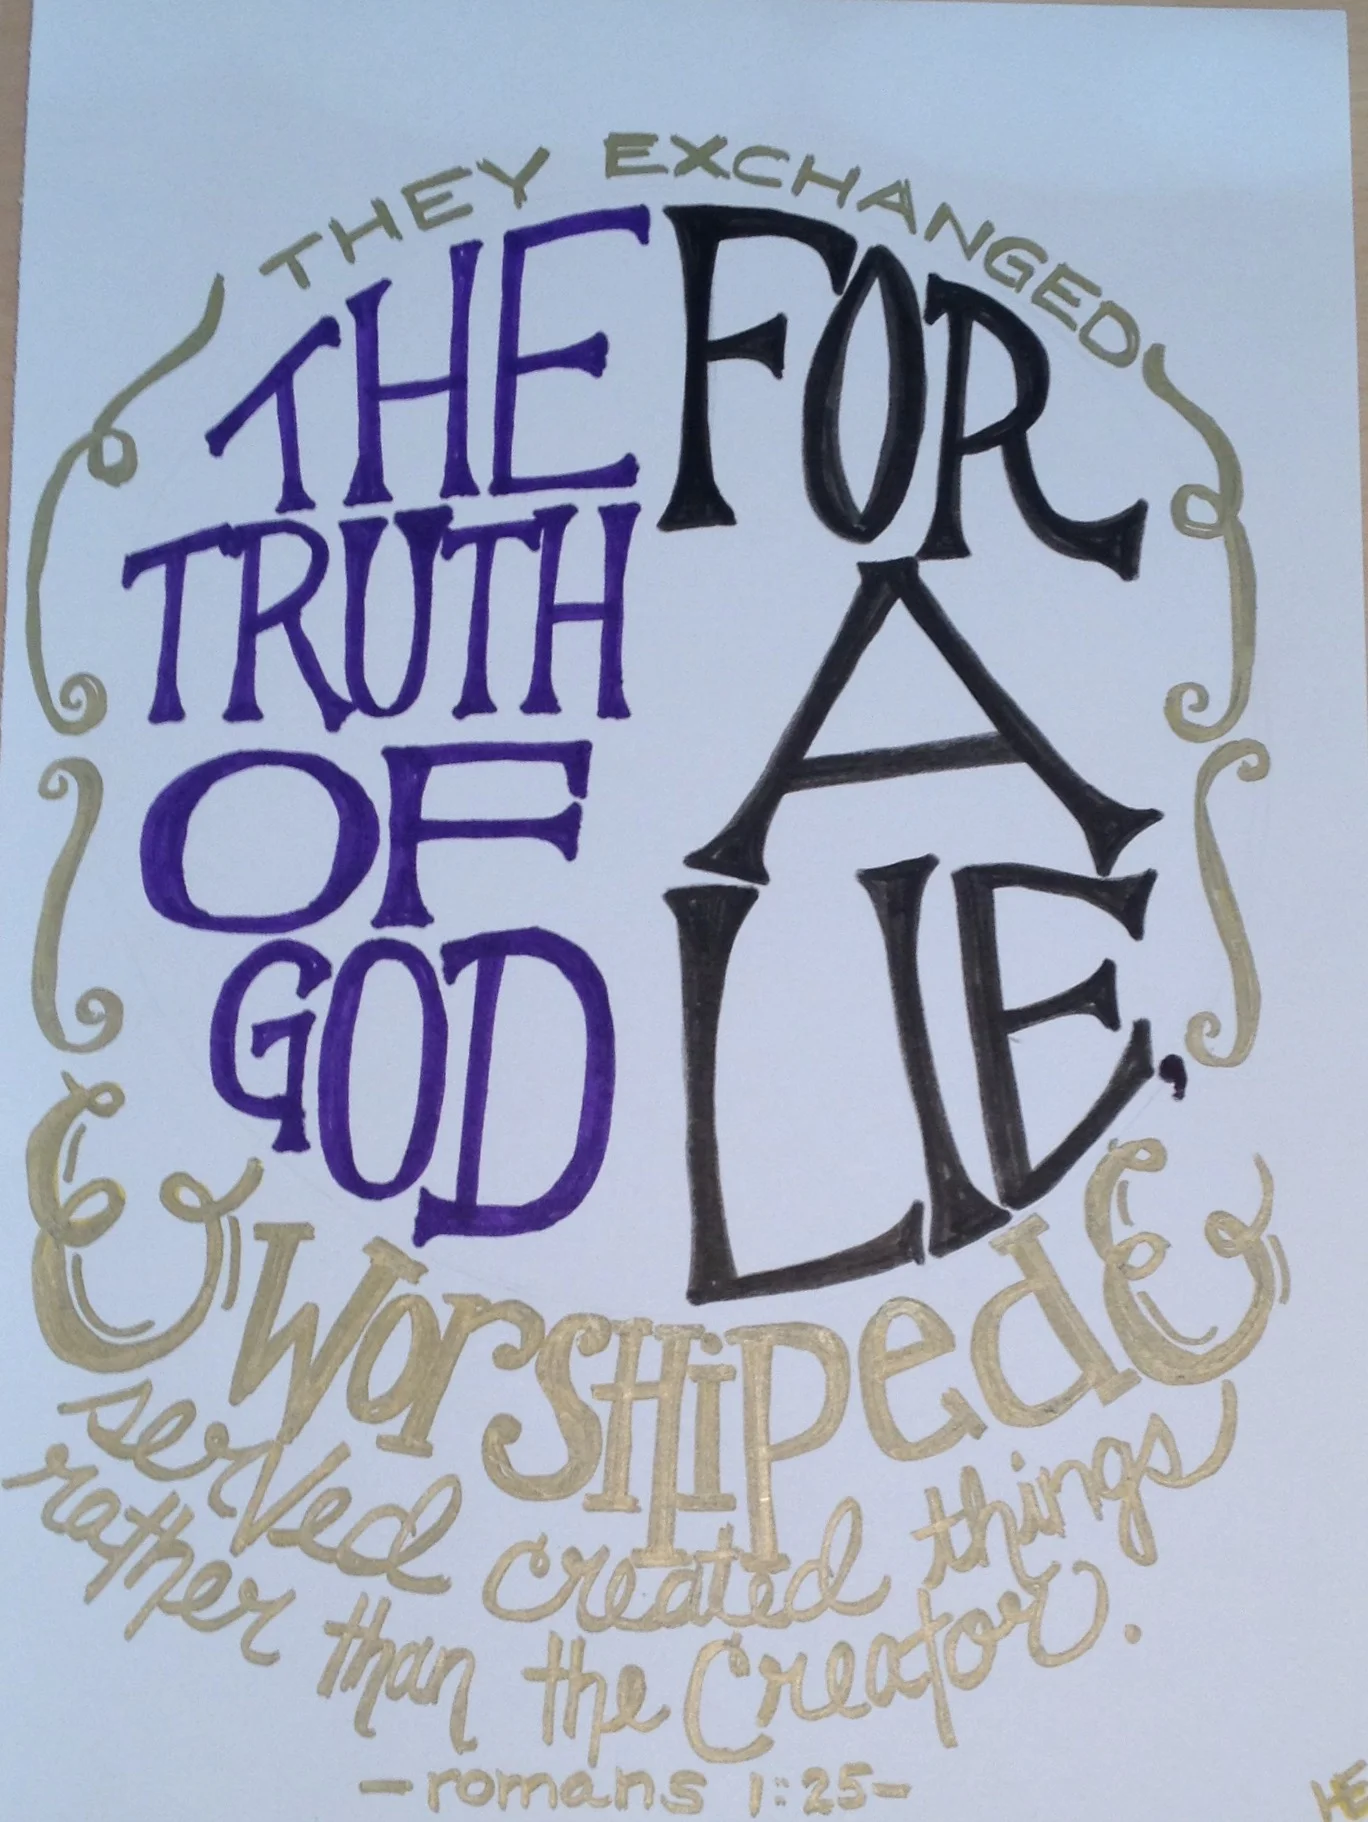 THEY EXCHANGED
THE
TRUTH
OF
GOD
FOR
A
LIE,
& WorsHiped &
serVed created things
rather than the Creator.
-romans 1:25-
HE